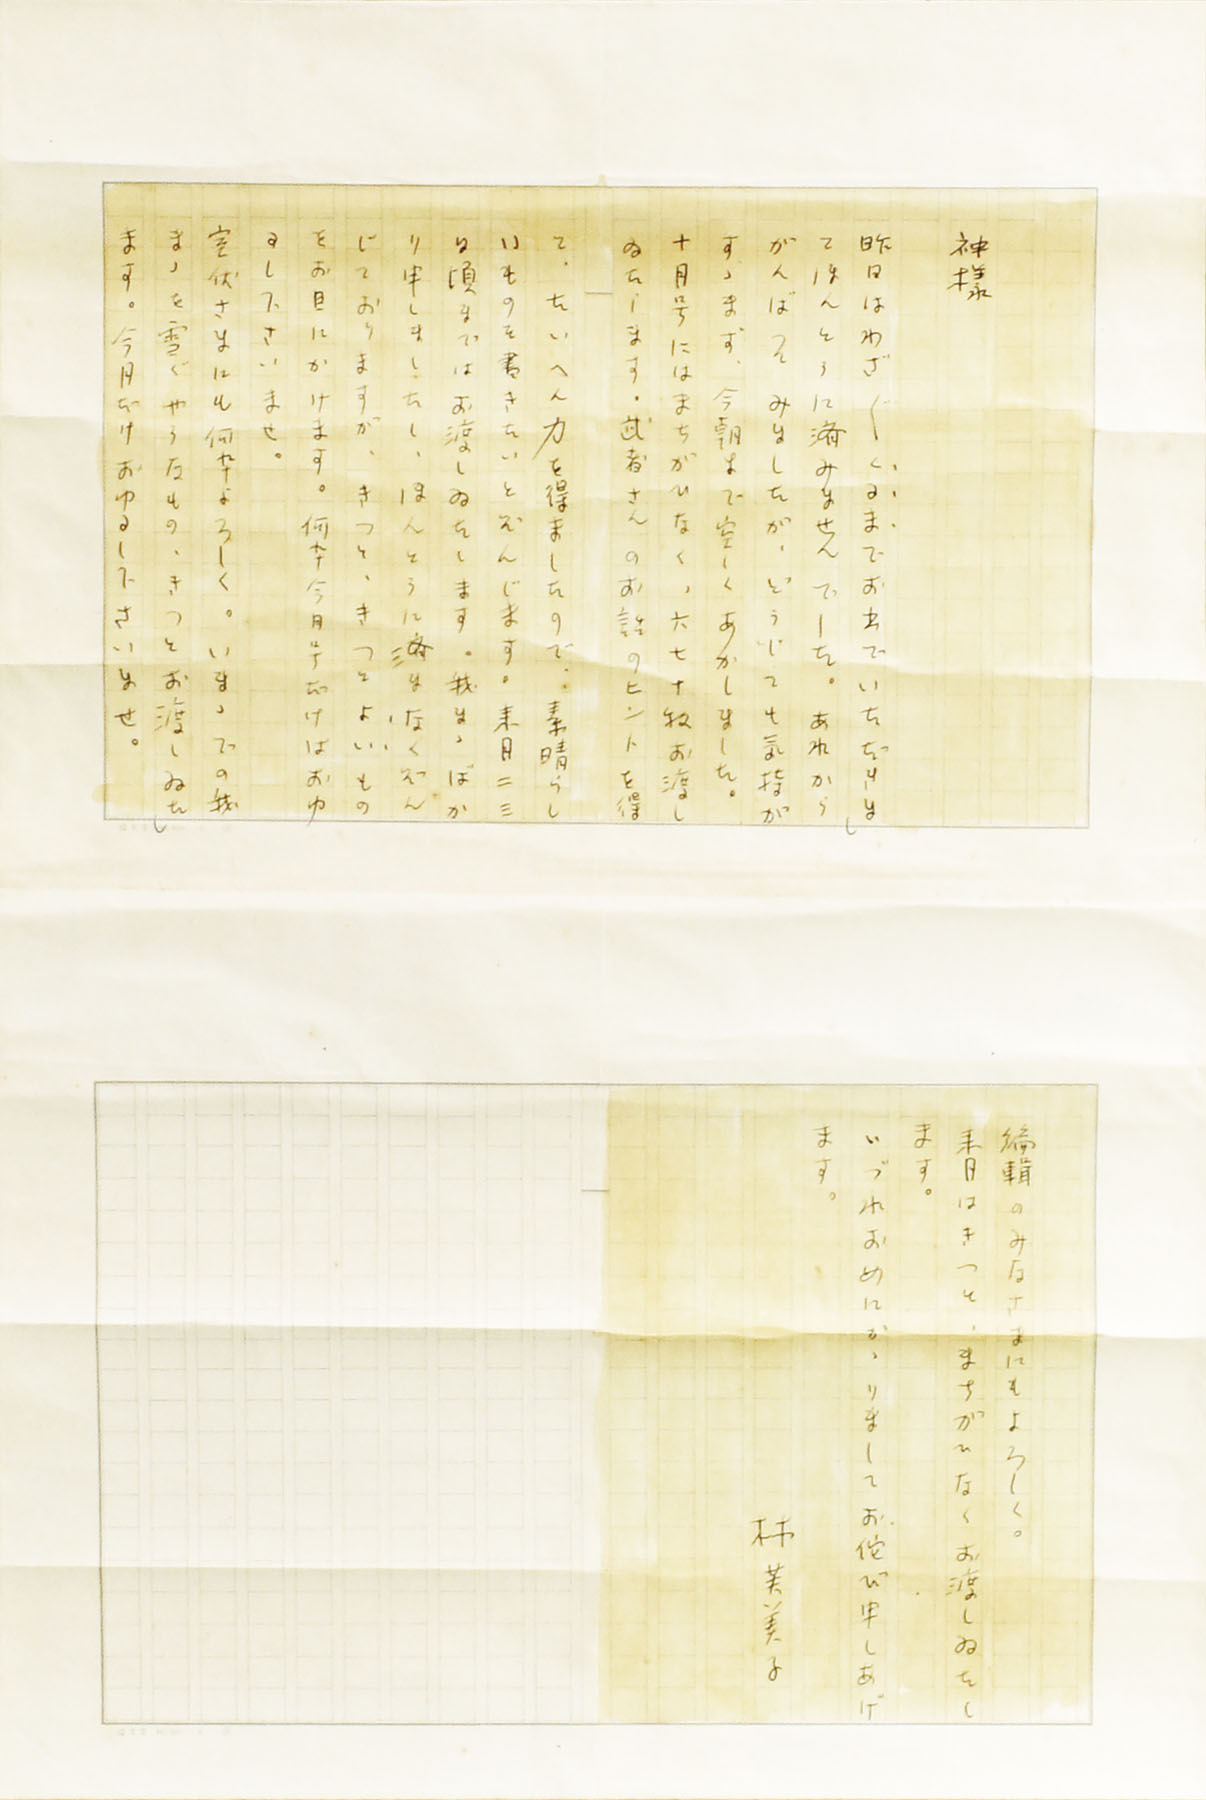 神様
昨日はわざ〱くるまでお出でいたゞきまし
てほんとうに済みませんでした。あれから
がんばつてみましたが、どうしても気持が
すゝまず、今朝まで空しくあかしました。
十月号にはまちがひなく、六七十枚お渡し
ゐたします。武者さんのお話のヒントを得
て、たいへん力を得ましたので、素晴らし
いものを書きたいとぞんじます。来月二三
日頃までにはお渡しゐたします。我まゝばか
り申しまして、ほんとうに済まなくぞん
じておりますが、きつと、きつとよいもの
をお目にかけます。何卒今月号だけはおゆ
るし下さいませ。
室伏さまにも何卒よろしく。いまゝでの我
まゝを雪ぐやうなもの、きつとお渡しゐたし
ます。今月だけおゆるし下さいませ。
編輯のみなさまにもよろしく。
来月はきつと、まちがひなくお渡しゐたし
ます。
いづれおめにかゝりましてお侘び申しあげ
ます。
林芙美子